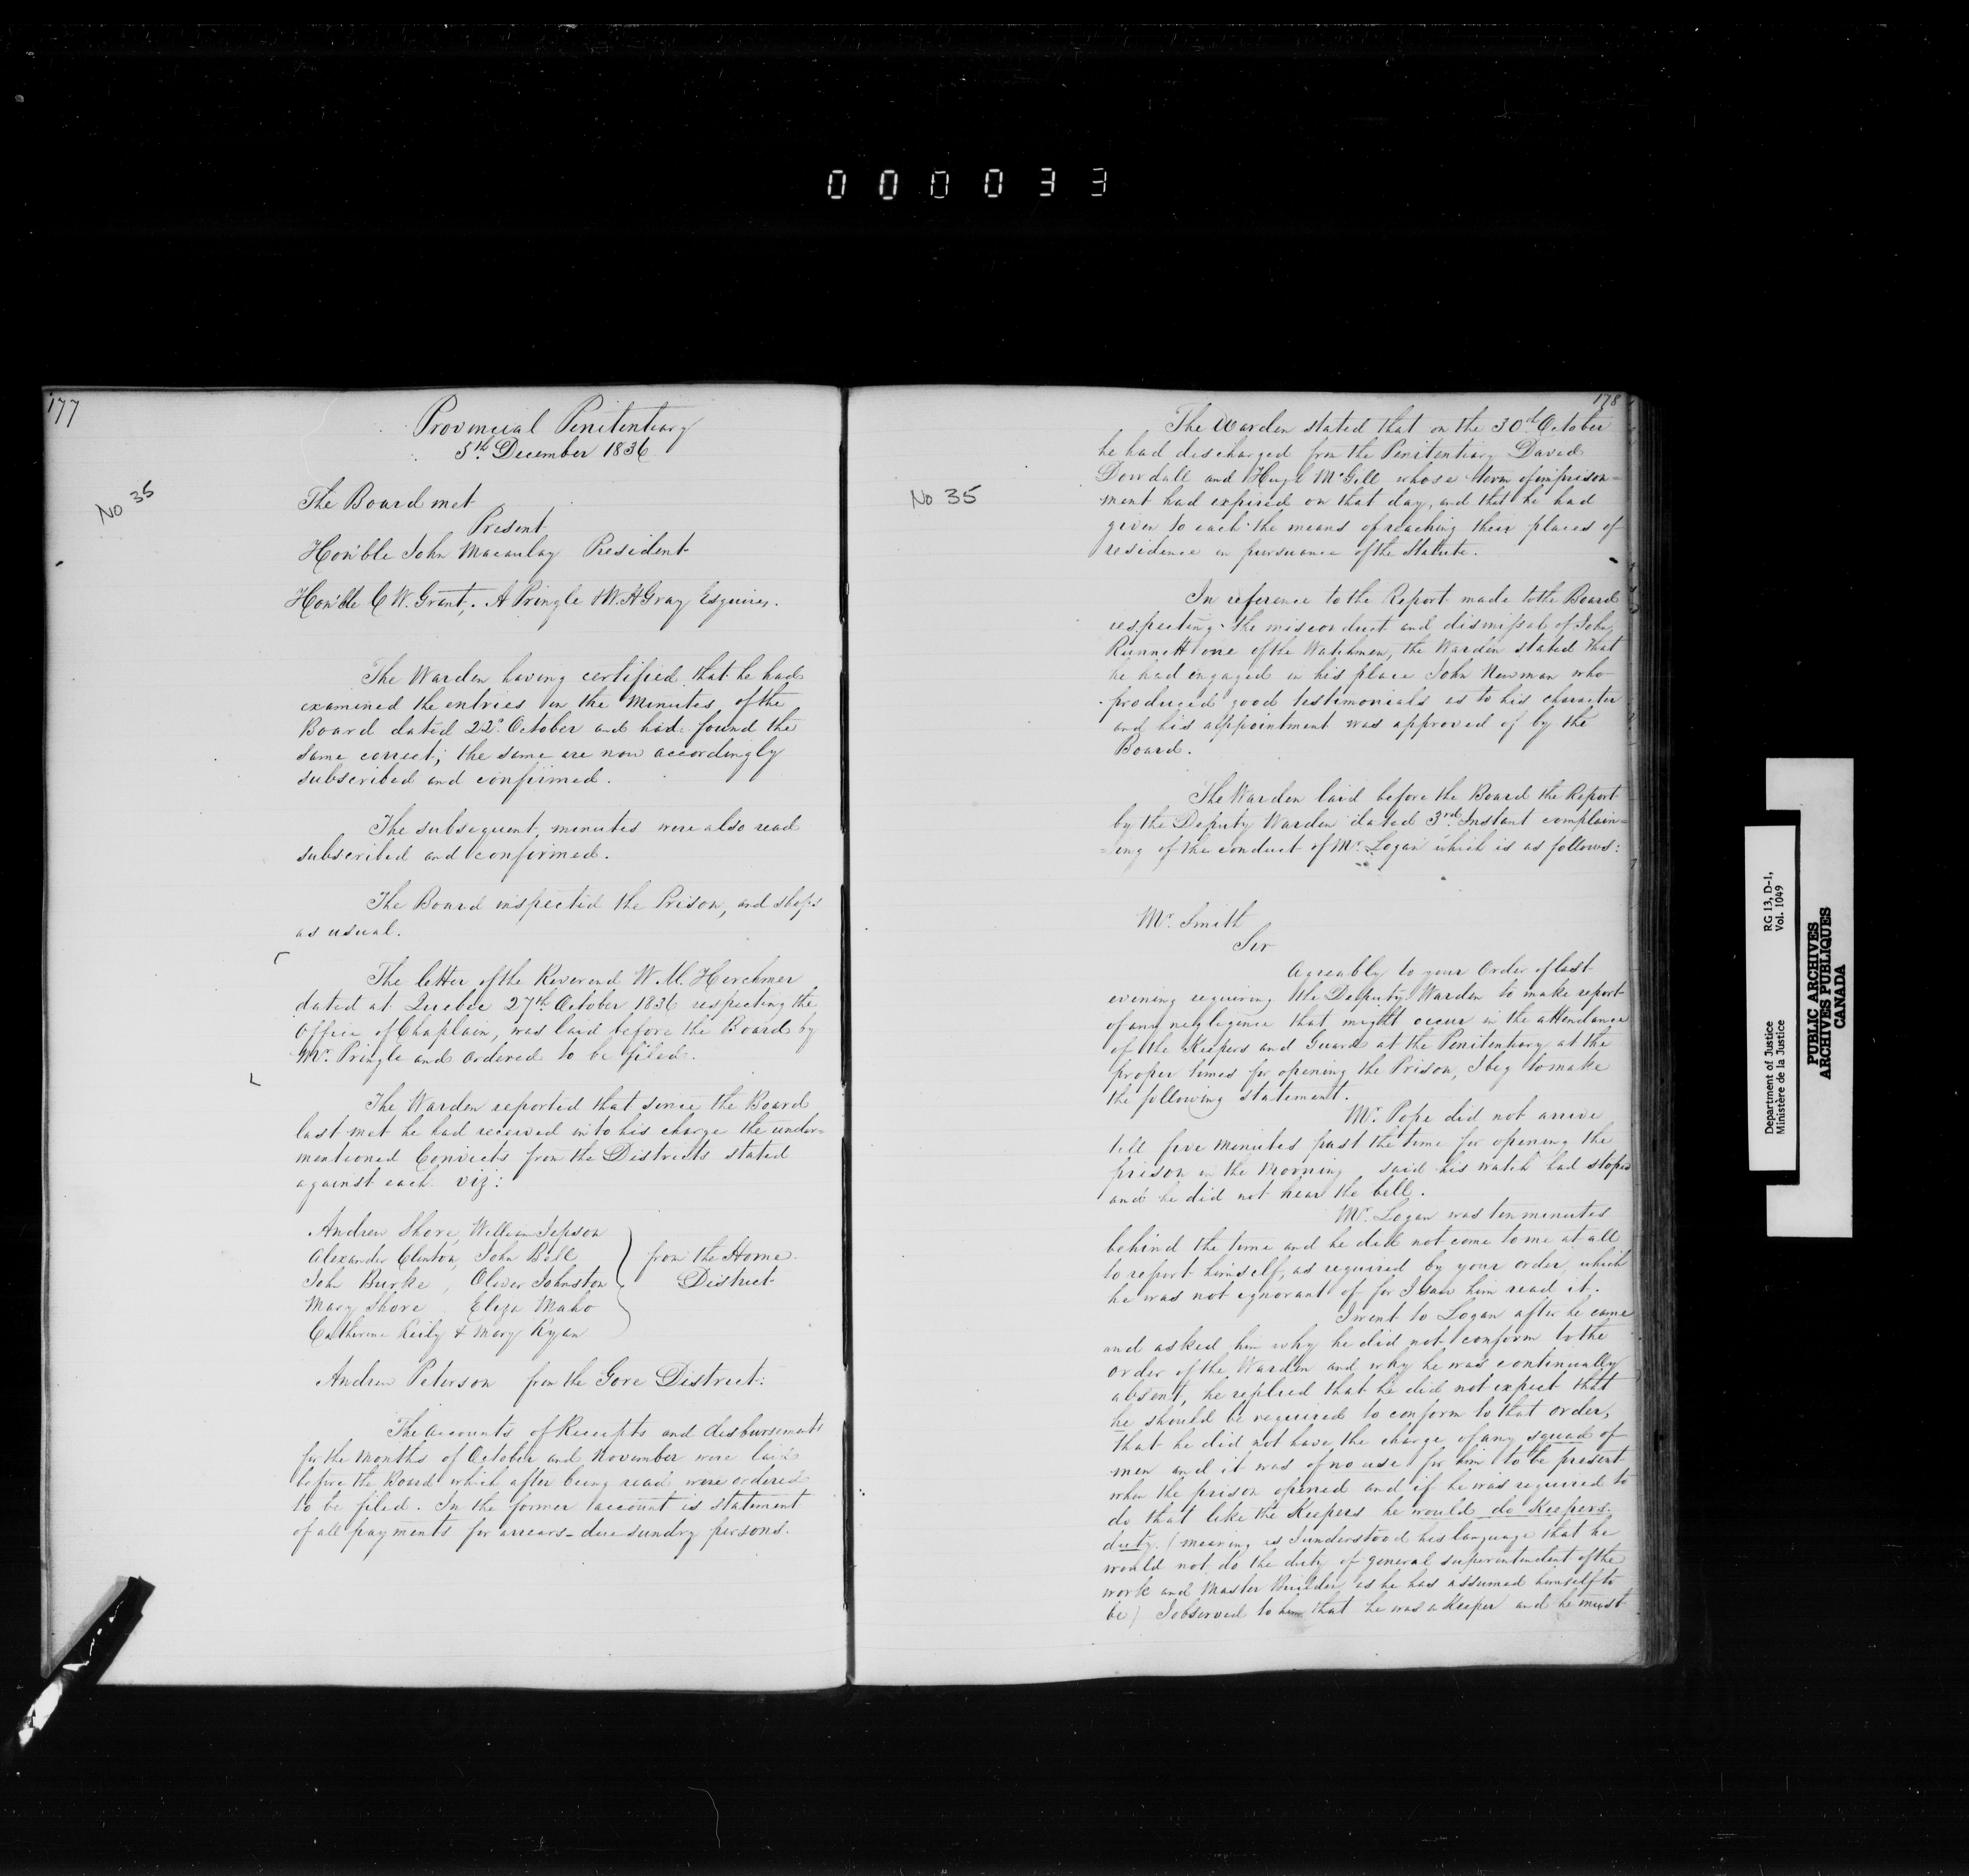 000033
177
Provincial Penitentiary
5th December 1836
No 35
The Board met
Present
Hon'ble John Macaulay President
Hon'ble C W. Grant, A Pringle & W. H Gray Esquires.
The Warden having certified that he had
examined the entries in the Minutes of the
Board dated 22d October and had found the
same correct; the same are now accordingly
subscribed and confirmed.
The subsequent minutes were also read
subscribed and confirmed.
The Board inspected the Prison, and shops
as usual.
The letter of the Reverend W. M. Herchmer
dated at Quebec 27th October 1836 respecting the
Office of Chaplain, was laid before the Board by
Mr. Pringle and ordered to be filed.
The Warden reported that since the Board
last met he had received into his charge the under=
mentioned Convicts from the Districts stated
against each viz:
Andrew Shore, William Jepson
Alexander Clinton, John Bell
John Burke, Oliver Johnston
Mary Shore Eliza Maho
Catherine Reily & Mary Ryan
from the Home
District
Andrew Peterson from the Gore District:
The accounts of Receipts and disbursements
for the Months of October and November were laid
before the Board which after being read were ordered
to be filed. In the former account is statement
of all payments for arrears due sundry persons.
178
No 35
The Warden stated that on the 30th October
he had discharged from the Penitentiary David
Dowdall and Hugh McGill whose term of imprison=
ment had expired on that day, and that he had
given to each the means of reaching their places of
residence in pursuance of the Statute.
In reference to the Report made to the Board
respecting the misconduct and dismissal of John
Runnett one of the Watchmen, the Warden stated that
he had engaged in his place John Newman who
produced good testimonials as to his character
and his appointment was approved of by the
Board.
The Warden laid before the Board the Report
by the Deputy Warden dated 3rd Instant complain=
=ing of the conduct of Mr. Logan which is as follows:
Mr. Smith
Sir
Agreably to your Order of last
evening requiring the Deputy Warden to make report
of any neglegence that might occur in the attendance
of the Keepers and Guard at the Penitentiary at the
proper times for opening the Prison, I beg to make
the following statement.
Mr. Pope did not arrive
till five minutes past the time for opening the
prison in the Morning said his watch had stoped
and he did not hear the bell.
Mr. Logan was ten minutes
behind the time and he did not come to me at all
to report himself, as required by your order, which
he was not ignorant of for I saw him read it.
I went to Logan after he came
and asked him why he did not conform to the
order of the Warden and why he was continually
absent, he replied that he did not expect that
he should be required to conform to that order,
that he did not have the charge of any squad of
men and it was of no use for him to be present
when the prison opened and if he was required to
do that like the Keepers he would do Keepers
duty. (meaning as I understood his language that he
would not do the duty of general superintendent of the
work and Master Builder as he has assumed himself to
be) I observed to him that he was a Keeper and he must
Department of Justice
Ministère de la Justice
RG 13, D-1,
Vol. 1049
PUBLIC ARCHIVES
ARCHIVES PUBLIQUES
CANADA